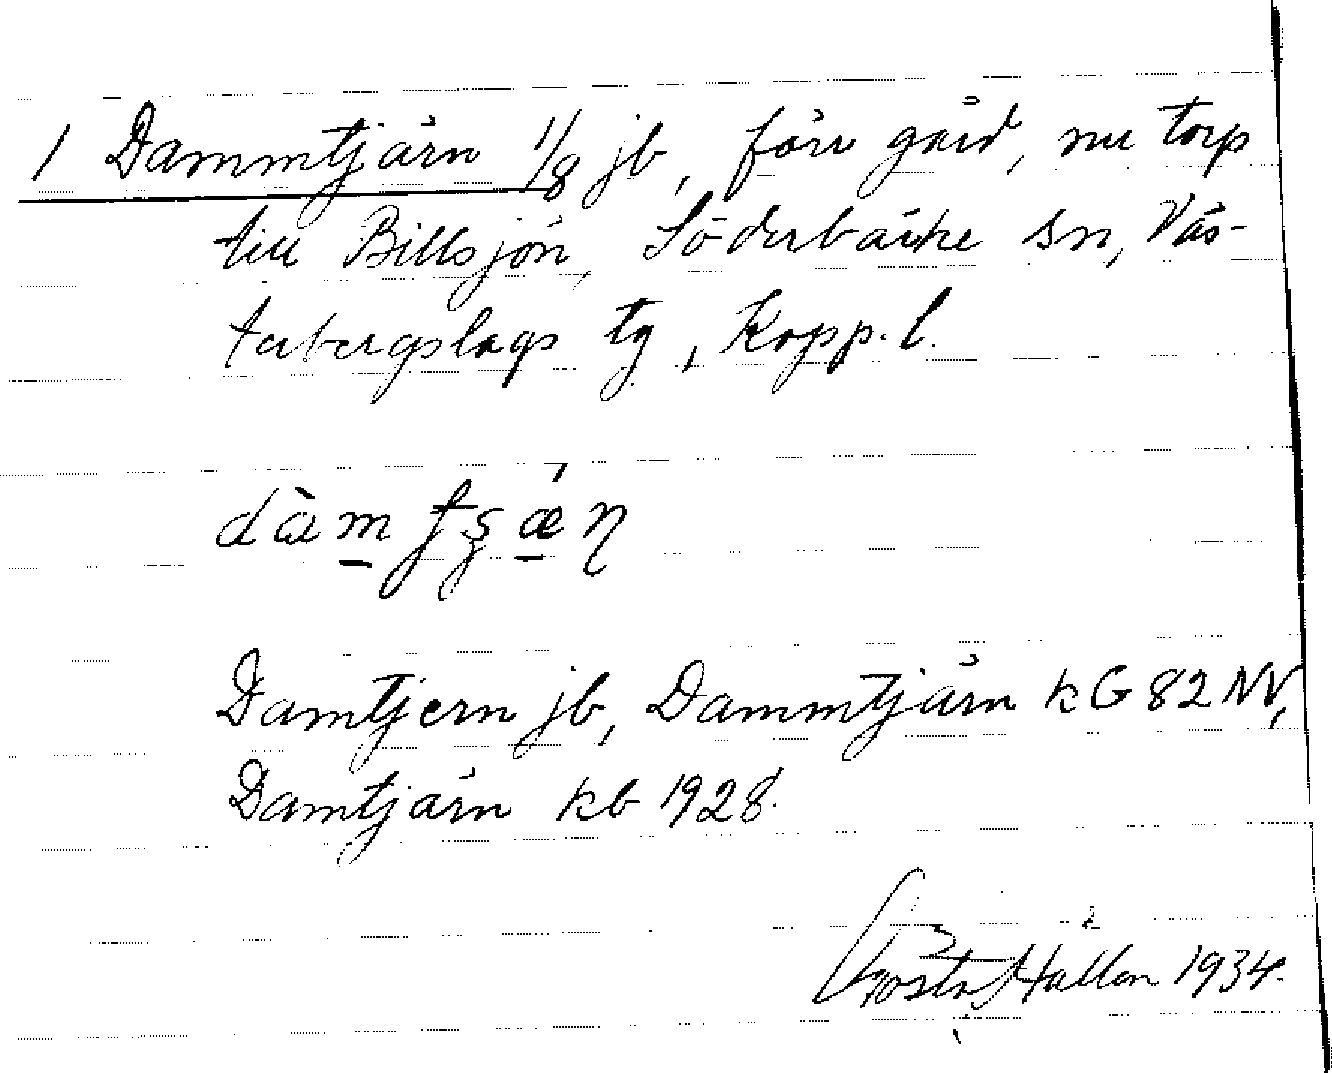 1 Dammtjärn 1/8 jb, förr gård, nu torp
till Billsjön, Söderbärke sn, Väs-
terbergslags tg, Kopp. l.
Damtjern jb, Dammtjärn kG 82 NV,
Damtjärn kb 1928.
Gösta Hallén 1934.